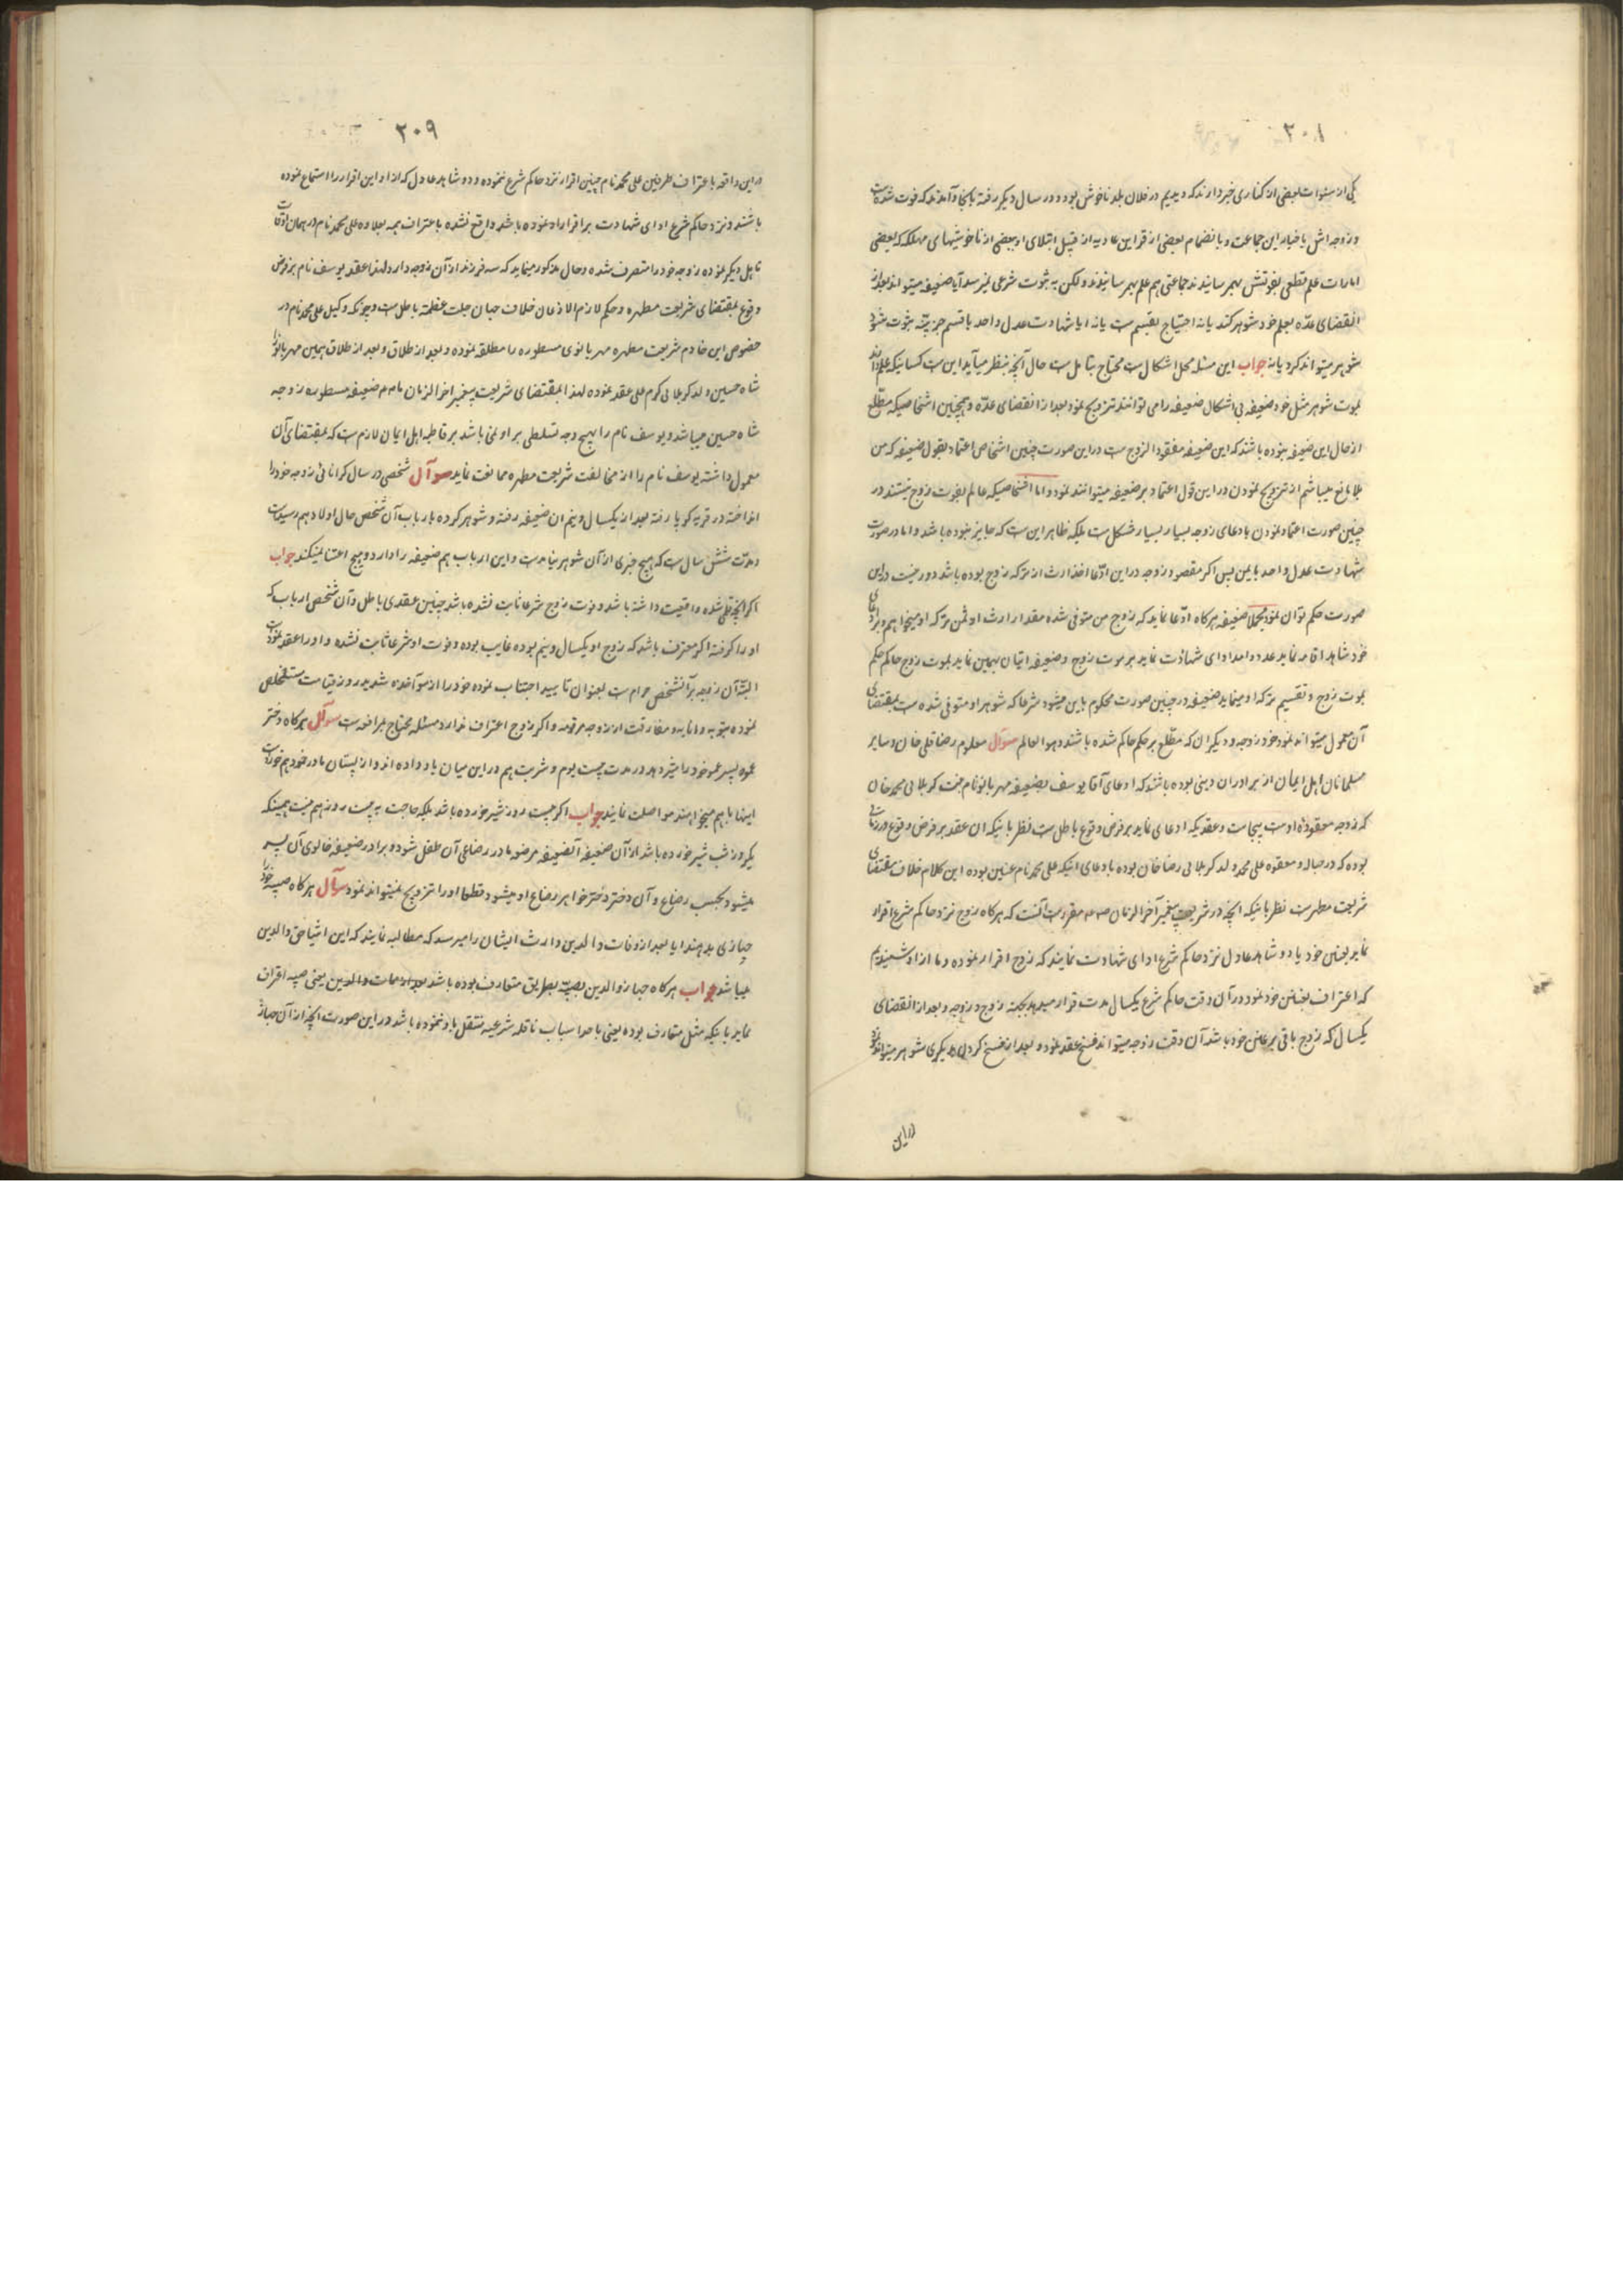 ۲۰۸
یکی از سنوات بعضی از کناری خبر دارند که دیدیم در فلان بلد ناخوش بود و در سال دیگر رفته بآنجا و آمدند که فوت شده است
و زوجه اش باخبار این جماعت و بانضمام بعضی از قراین عادیه از قبیل ابتلای او ببعضی از ناخوشیهای مهلکه که بعضی
امارات علم قطعی بفوتش بهم رسانیدند جماعتی هم علم بهم رسانیدند ولکن به ثبوت شرعی نمیرسد آیا ضعیفه میتواند بعد از
انقضای عدّه بعلم خود شوهر کند یا نه احتیاج بقسم است یا نه ایا شهادت عدل واحد با قسم جزئیّه ثبوت شود
شوهر میتواند کرد یا نه جواب این مسئله محل اشکال است محتاج بتامل است حال آنچه بنظر میآید این است کسانیکه علم دارند
بموت شوهر مثل خود ضعیفه بی اشکال ضعیفه را می توانند تزویج نمود بعد از انقضای عدّه و همچنین اشخاصیکه مطّلع
از حال این ضعیفه نبوده باشند که این ضعیفه مفقود الزوج است در این صورت چنین اشخاص اعتماد بقول ضعیفه که من
بلا مانع میباشم از تزویج نمودن در این قول اعتماد بر ضعیفه میتوانند نمود و اما اشخاصیکه عالم بفوت زوج نیستند در
چنین صورت اعتماد نمودن بادعای زوجه بسیار بسیار مشکل است بلکه ظاهر این است که جایز نبوده باشد و اما در صورت
شهادت عدل واحد با یمن پس اگر مقصود زوجه در این ادّعا اخذ ارث از ترکه زوج بوده باشد دور نیست در این
صورت حکم توان نمود مجملا ضعیفه هرکاه ادّعا نماید که زوج من متوفی شده مقدار ارث او ثمن ترکه او میخواهم و برادعای
خود شاهد اقامه نماید عدد واحد ادای شهادت نماید بر موت زوج و ضعیفه اتیان بیمین نماید بموت زوج حاکم حکم
بموت زوج و تقسیم ترکه او مینماید ضعیفه در چنین صورت محکوم باین میشود شرعا که شوهر او متوفی شده است بمقتضای
آن معمول میتواند نمود خود زوجه و دیگران که مطّلع بر حکم حاکم شده باشند و هو العالم سوآل معلوم رضا قلی خان و سایر
مسلمانان اهل ایمان از برادران دینی بوده باشند که ادعای آقا یوسف بضعیفه مهر بانو نام بنت کربلائی محمد خان
که زوجه معقوده او است بیجاست و عقدیکه ادعای نماید بر فرض وقوع باطل است نظر باینکه ان عقد بر فرض وقوع در زمانی
بوده که در حباله و معقوده علی محمد ولد کربلائی رضا خان بوده بادعای اینکه علی محمد نام عنّین بوده این کلام خلاف مقتضای
شریعت مطهر است نظر باینکه انچه در شریعت پیغمبر آخر الزمان مقرر است آنست که هرکاه زوج نزد حاکم شرع اقرار
نماید بعنن خود یا دو شاهد عادل نزد حاکم شرع ادای شهادت نمایند که زوج اقرار نموده و ما از او شنیدیم
که اعتراف بعنن خود نمود در آن وقت حاکم شرع یکسال مدت قرار میدهد بجهة زوج و زوجه و بعد از انقضای
یکسال که زوج باقی بر عنن خود باشد آن وقت زوجه میتواند فسخ عقد نمود و بعد از فسخ کردن بدیگری شوهر میتواند نمود
در این
۲۰۹
در این واقعه باعتراف طرفین علی محمد نام چنین اقرار نزد حاکم شرع ننموده و دو شاهد عادل که از او این اقرار را استماع نموده
باشند و نزد حاکم شرع ادای شهادت بر اقرار او نموده باشد واقع نشده باعتراف همه بعلاوه علی محمد نام در همان اوقات
تاهل دیگر نموده زوجه خود را متصرف شده و حال مذکور مینماید که سه فرزند از آن زوجه دارد لهذا عقد یوسف نام بر فرض
وقوع بمقتضای شریعت مطهره و حکم لازم الاذعان خلاف جلت عظمته باطل است و چونکه وکیل علی محمد نام در
حضور این خادم شریعت مطهره مهر بانوی مسطوره را مطلقه نموده و بعد از طلاق و بعد از طلاق همین مهر بانو را
شاه حسین ولد کربلائی کرم علی عقد نموده لهذا بمقتضای شریعت پیغمبر اخر الزمان ضعیفه مسطوره زوجه
شاه حسین میباشد و یوسف نام را بهیچ وجه تسلطی بر او نمی باشد بر قاطبه اهل ایمان لازم است که بمقتضای آن
معمول داشته یوسف نام را از مخالفت شریعت مطهره ممانعت نماید سوآل شخصی در سال کرانی زوجه خود را
انداخته در قریه کویا رفته بعد از یکسال و نیم ان ضعیفه رفته و شوهر کرده بارباب آن شخص حال اولاد هم رسیده است
و مدّت شش سال است که هیچ خبری از آن شوهر نیامده است و این ارباب هم ضعیفه را دارد و هیچ اعتنا نمیکند جواب
اکر انچه قلمی شده واقعیت داشته باشد و فوت زوج شرعا ثابت نشده باشد چنین عقدی باطل و آن شخص ارباب که
او را کرفته اکر معترف باشد که زوج او یکسال و نیم بوده غایب بوده و فوت او شرعا ثابت نشده و او را عقد نموده است
البتّه آن زوجه بر آنشخص حرام است بعنوان تایید اجتناب نموده خود را از مؤاخذه شدید روز قیامت مستخلص
نموده بتوبه و انابه و مفارقت از زوجه مرقومه و اکر زوج اعتراف ندارد مسئله محتاج بمرافعه است سوآل هرکاه دختر
عمو پسر عمو خود را شیر دهد در مدت بیست یوم و شربت هم در این میان باو داده اند و از پستان مادر خود هم خورده است
اینها با هم میخواهند مواصلت نمایند جواب اکر بیست روز شیر خورده باشد بلکه حاجت به بیست روز هم نیست همینکه
یکروز شب شیر خورده باشد از آن ضعیفه آنضعیفه مرضعه مادر رضاعی آن طفل شود و برادر ضعیفه خالوی آن پسر
میشود بحسب رضاع و آن دختر دختر خواهر رضاع او میشود قطعا او را تزویج نمیتواند نمود سوآل هرکاه صبیه خود را
جهازی بدهند ایا بعد از وفات والدین وارث ایشان را میرسد که مطالبه نمایند که این اشیا حق والدین
میباشد جواب هرکاه جهاز والدین بصبیّه بطریق متعارف بوده باشد بعد از ممات والدین یعنی صبیه اقراف
نماید باینکه مثل متعارف بوده یعنی باحد اسباب ناقله شرعیه منتقل باو ننموده باشد در این صورت انچه از آن جهاز